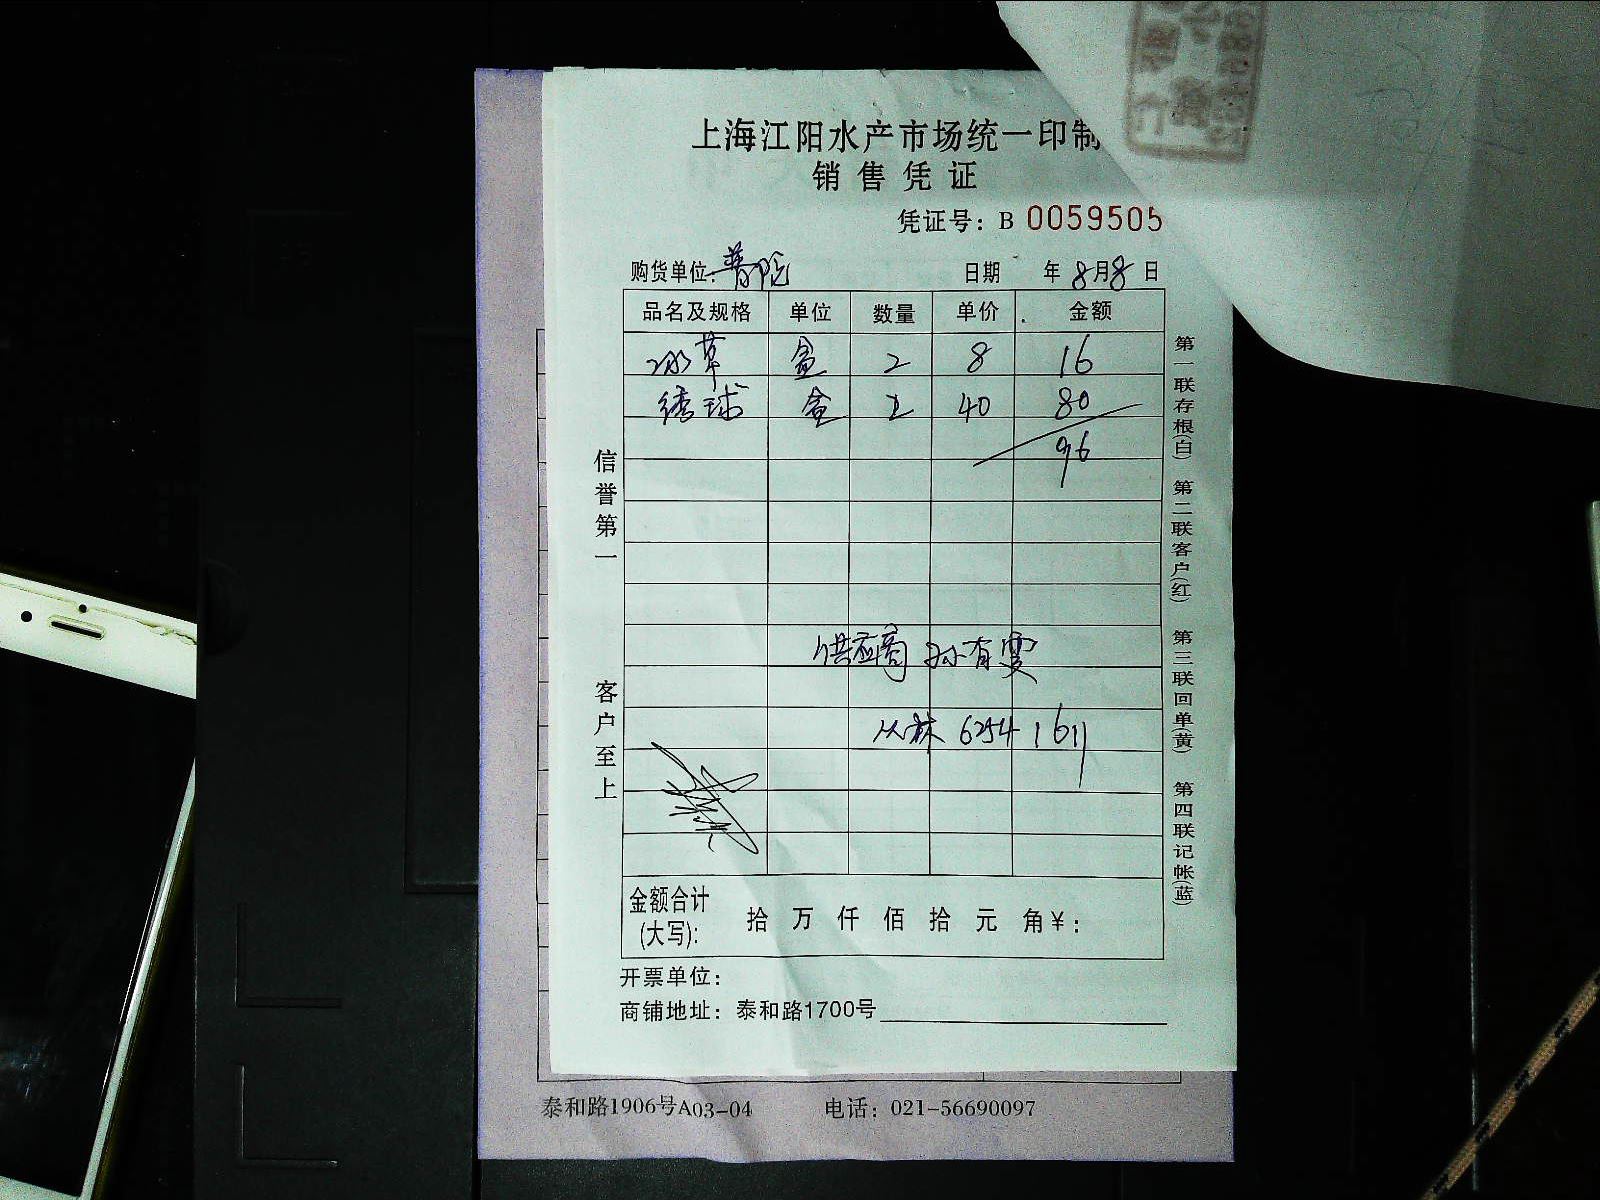 上海江阳水产市场统一印制
销售凭证
凭证号：B 0059505
购货单位：普陀 日期 年8月8日
品名及规格 单位 数量 单价 金额
冰草 盒 2 8 16
绣球 盒 2 40 80
96
供应商 孙有雯
从林 62541611
信誉第一
客户至上
第一联存根(白) 第二联客户(红) 第三联回单(黄) 第四联记帐(蓝)
金额合计(大写)： 拾 万 仟 佰 拾 元 角¥：
开票单位：
商铺地址：泰和路1700号
泰和路1906号A03-04 电话：021-56690097